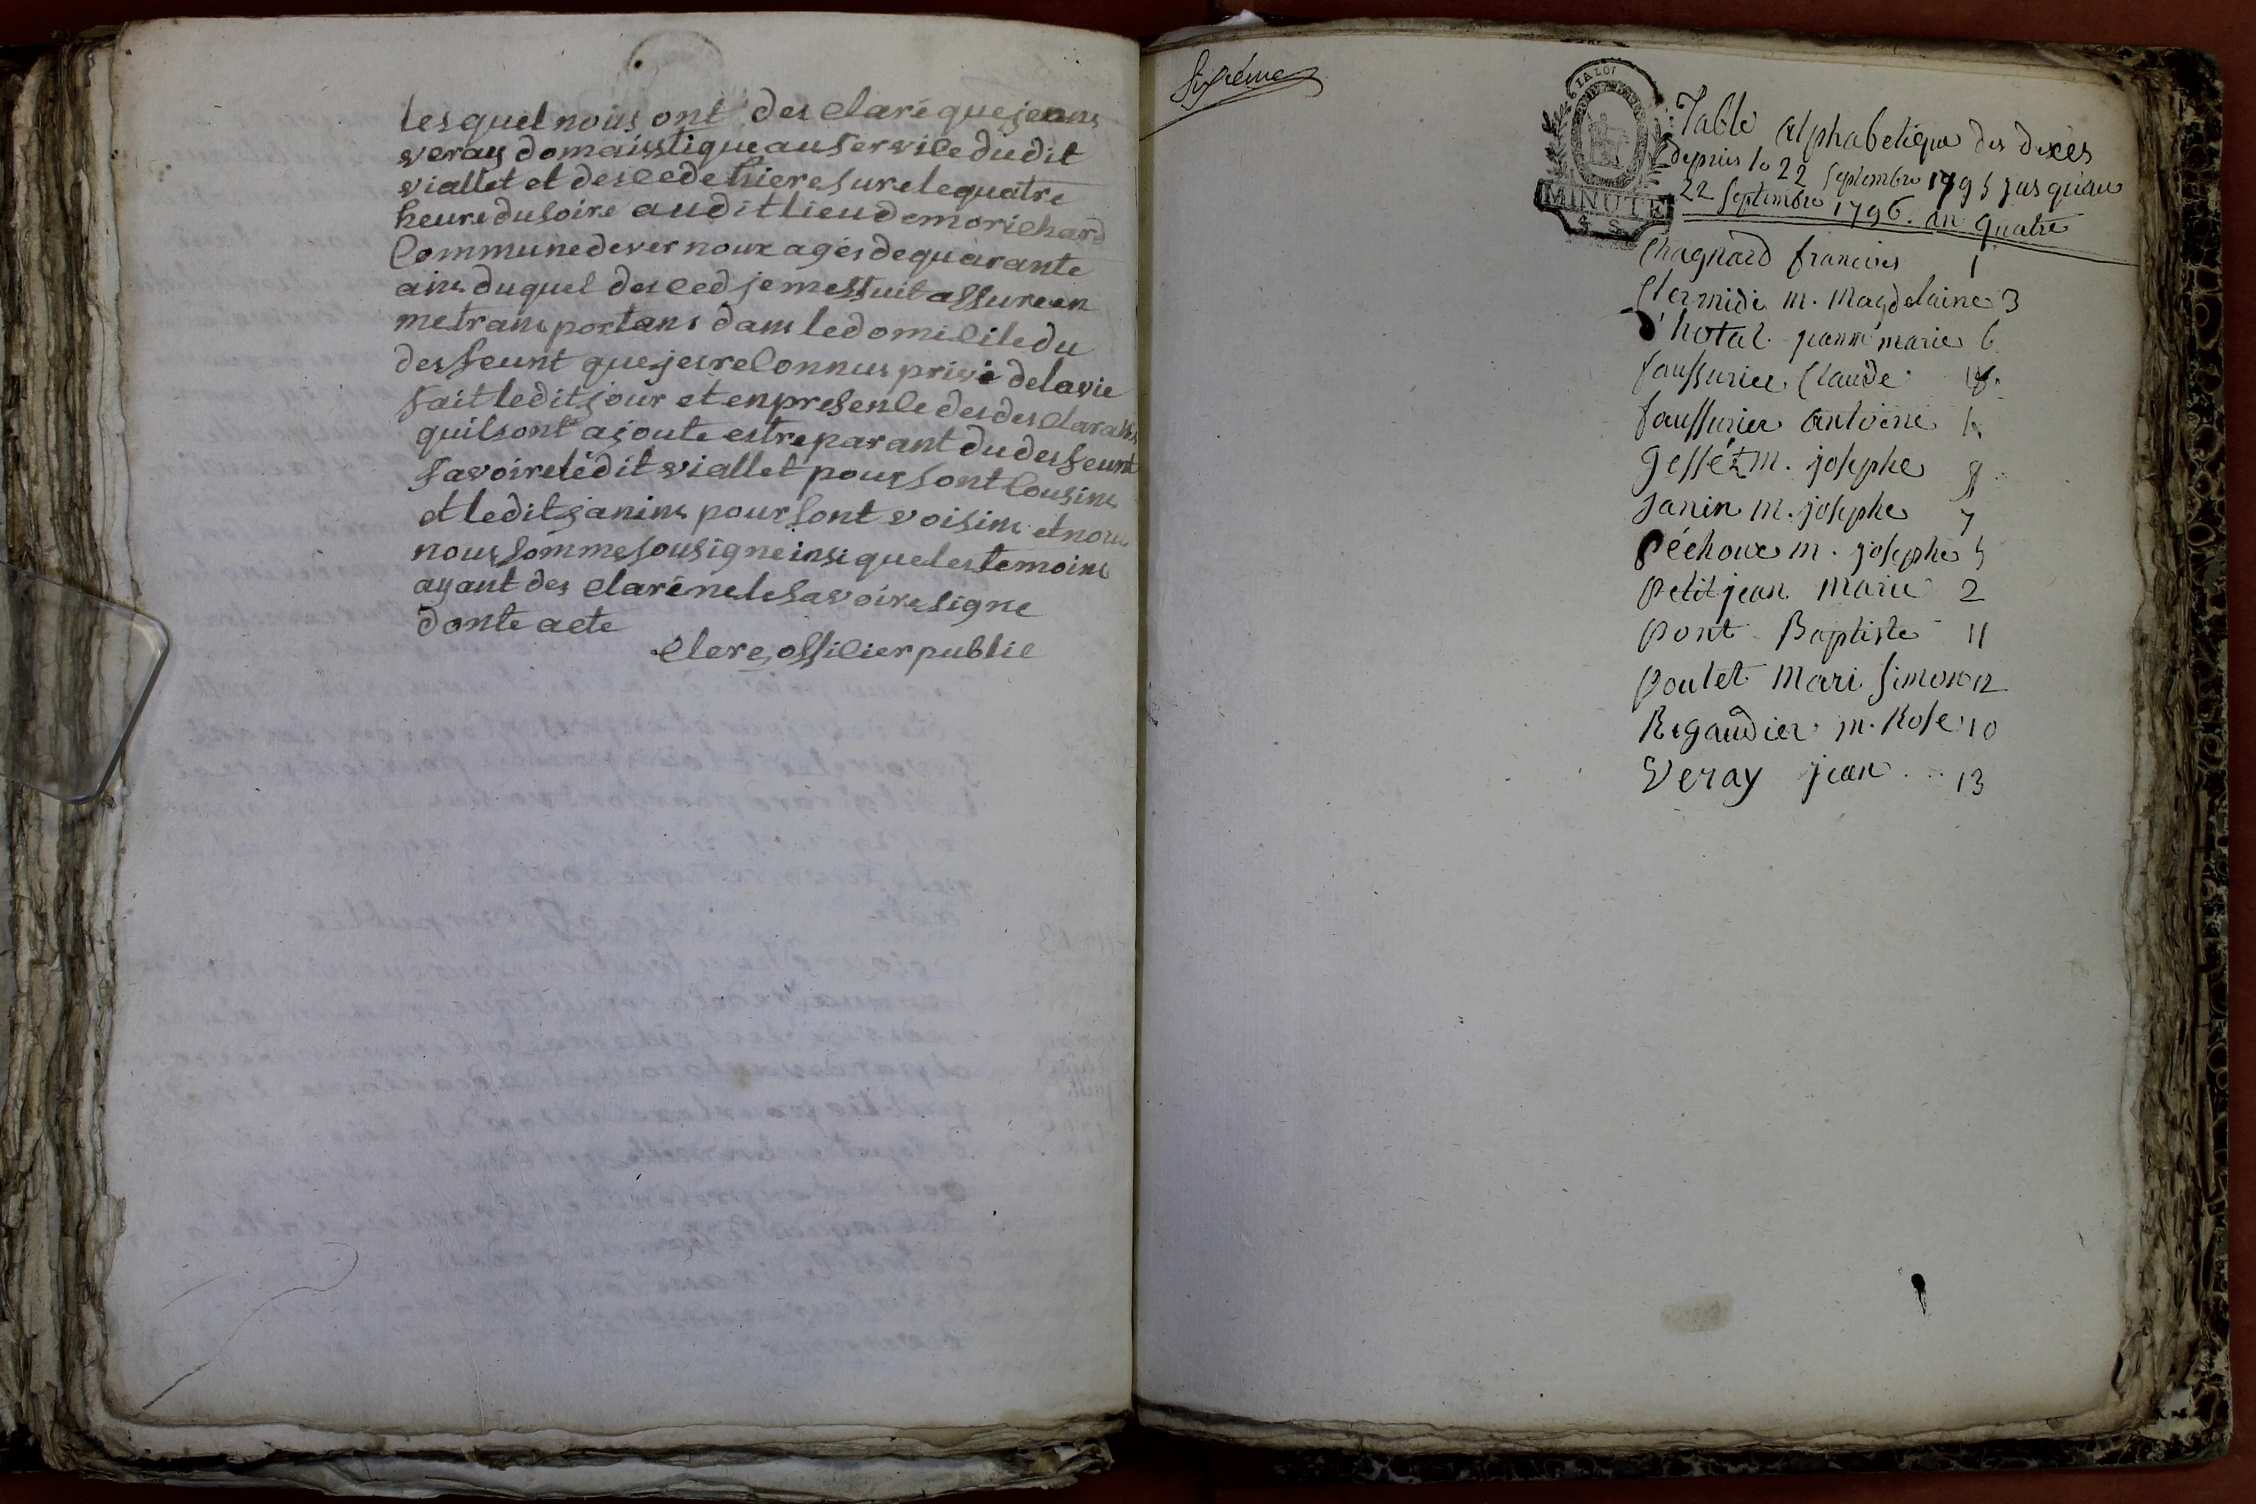 les quel nous ont des claré que jeans
veray domaisstique au service du dit
viallet et des cede hiere sur le quatre
heure du soire au dit lieu de morichard
Commune de vernoux agés de quarante
ains du quel des ced je mes suit assure en
me trans portans dans le domicile du
des feunt que jes reconnus privé de la vie
fait le dit jour et en presence des des clarants
quil sont ajoute estre parant du des feunt
savoire le dit viallet pour sont Cousins
et le dit janins pour sont voisins et nous
nous somme sousigne insi que les temoins
ayant des claré ne le savoire signe
donte acte
clere, officier public
Sixième
LA LOI
MINUTE
5 S
Table alphabetique des dexès
depuis le 22 septembre 1795 jusqu'au
22 septembre 1796. an quatre
Chagnard francois 1
Clermidi m. Magdelaine 3
d'hotal jeanne marie 6
faussurier Claude
faussurier antoine
Gessé m. josephe
Janin m. josephe 7
Péchoux m. josephe 5
petit jean marie 2
pont Baptiste 11
poulet Mari Simon 12
Regaudier m. Rose 10
Veray jean 13